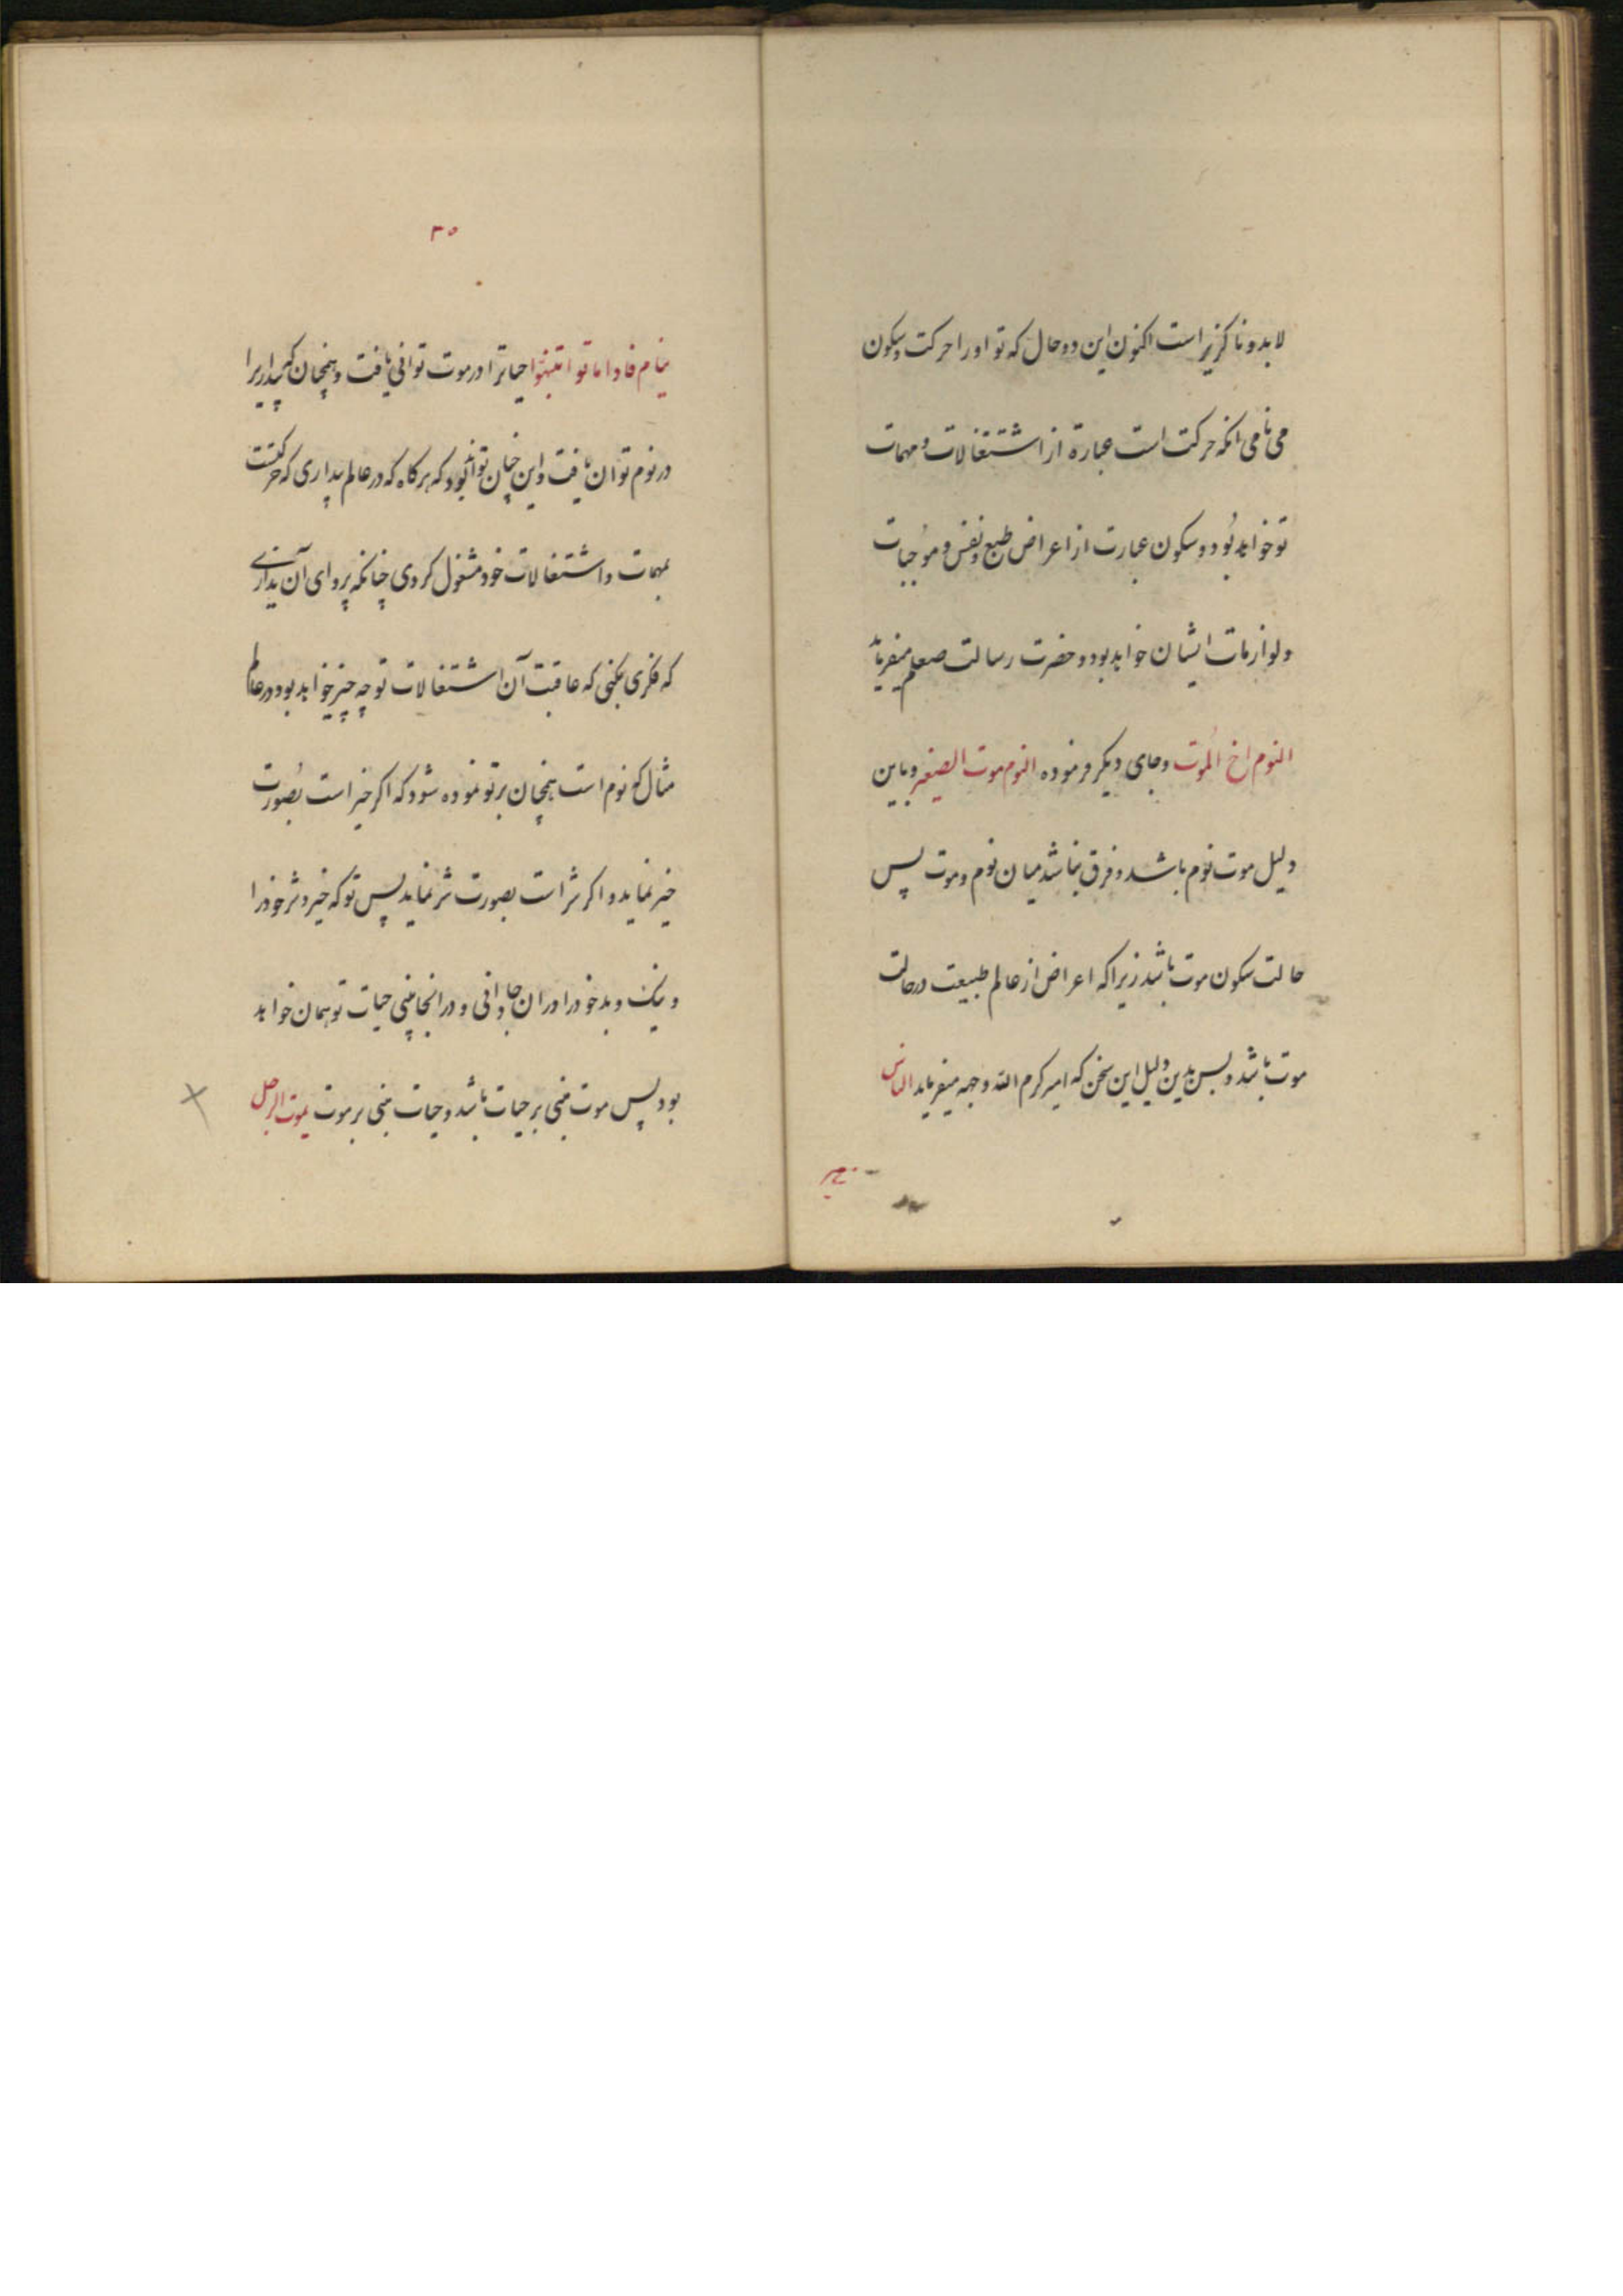 لابد و ناکزیر است اکنون این دو حال که تو او را حرکت و سکون
می نامی انکه حرکت است عبارة از اشتغالات و مهمات
تو خواهد بود و سکون عبارت از اعراض طبع و نفس و موجبات
و لوازمات ایشان خواهد بود و حضرت رسالت صعلم میفرماید
النوم اخ الموت و جای دیکر فرموده النوم موت الصغیر و باین
دلیل موت نوم باشد و فرق نباشد میان نوم و موت پس
حالت سکون موت باشد زیرا که اعراض از عالم طبیعت در حالت
موت باشد و بس بدین دلیل این سخن که امیر کرم الله وجهه میفرماید الناس
۳۵
نیام فاذا ماتوا انتبهوا حیاترا در موت توانی یافت و همچنان که بیداریرا
در نوم توان یافت و این چنان تواند بود که هر کاه که در عالم بیداری که حرکتست
بمهمات و اشتغالات خود مشغول کردی چنانکه پروای آن نداری
که فکری بکنی که عاقبت آن اشتغالات تو چه چیز خواهد بود در عالم
مثال که نوم است همچنان بر تو نموده شود که اکر خیر است بصورت
خیر نماید و اکر شر است بصورت شر نماید پس تو که خیر و شر خود را
و نیک و بد خود را در ان جا دانی و در انجا بینی حیات تو همان خواهد
بود پس موت مبنی بر حیات باشد و حیات مبنی بر موت یموت الرجل